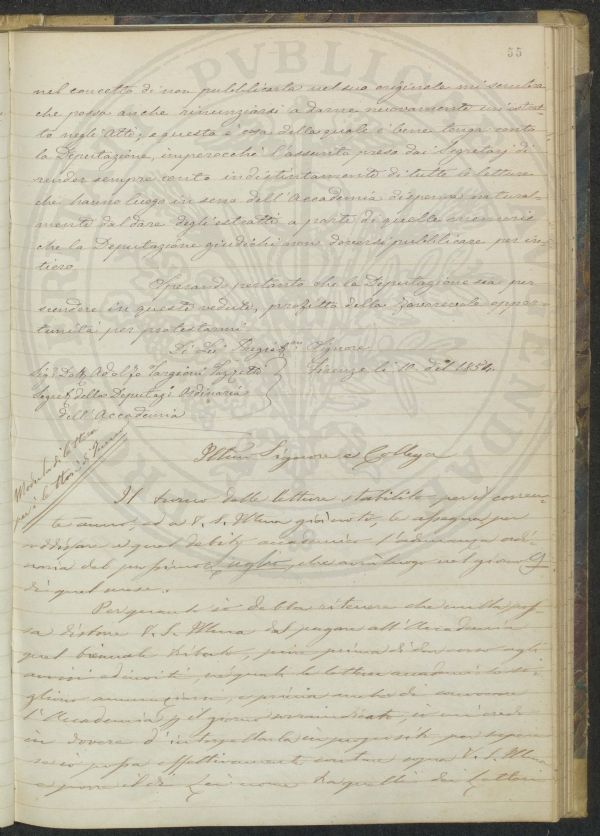 55
nel concetto di non pubblicarla nel suo originale mi sembra
che possa anche rinunziarsi a darne nuovamente un'estrat-
to negli Atti; e questa è cosa della quale è bene tenga conto
la Deputazione, imperocchè l'assunto preso dai Segretarj di
render sempre conto indistintamente di tutte le letture
che hanno luogo in seno dell'Accademia dispensa natural-
mente dal dare degli estratti a parte di quelle memorie
che la Deputazione giudichi non doversi pubblicare per in-
tiero.
Sperando pertanto che la Deputazione sia per
scendere in queste vedute, profitta della favorevole oppor-
tunità per protestarmi
Di Lei Signore
Sig. Dott. Adolfo Targioni Tozzetti
Firenze li 10 del 1854
Segret. della Deputaz. Ordinaria
dell'Accademia
Modula di lettera
per i lettori di turno
Illmo Signore e Collega
Il turno delle letture stabilito per il corren-
te anno, ed a V. S. Illma già noto, le assegna per
soddisfare a quel debito accademico l'adunanza ordi-
naria del prossimo Luglio, che avrà luogo nel giorno 9
di quel mese.
Per quanto io debba ritenere che nulla pos-
sa distorre V. S. Illma dal pagare all'Accademia
quel biennale tributo, pure prima di dar corso agli
avvisi ed inviti, nei quali le letture accademiche so-
gliono annunziarsi, e prima anche di convocare
l'Accademia p. il giorno sovraindicato, io mi credo
in dovere d'interpellarla in proposito per sapere
se io possa effettivamente contare sopra V. S. Illma
e porre il di Lei nome tra quelli dei Lettori